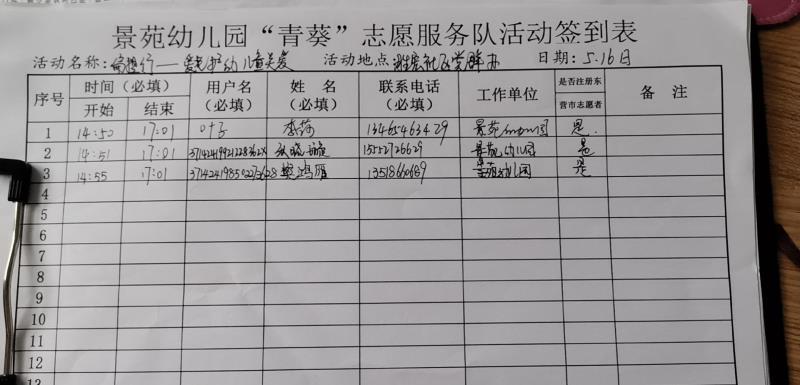 景苑幼儿园“青葵”志愿服务队活动签到表
活动名称: 行——爱护幼儿童关爱 活动地点: 社区党群办 日期: 5.16日
序号 时间（必填） 用户名（必填） 姓 名（必填） 联系电话（必填） 工作单位 是否注册东营市志愿者 备 注
开始 结束
1 14:50 17:01 叶子 李莎 13465463429 景苑幼儿园 是.
2 14:51 17:01 15552726629 景苑幼儿园 是
3 14:55 17:01 景苑幼儿园 是
4
5
6
7
8
9
10
11
12
13